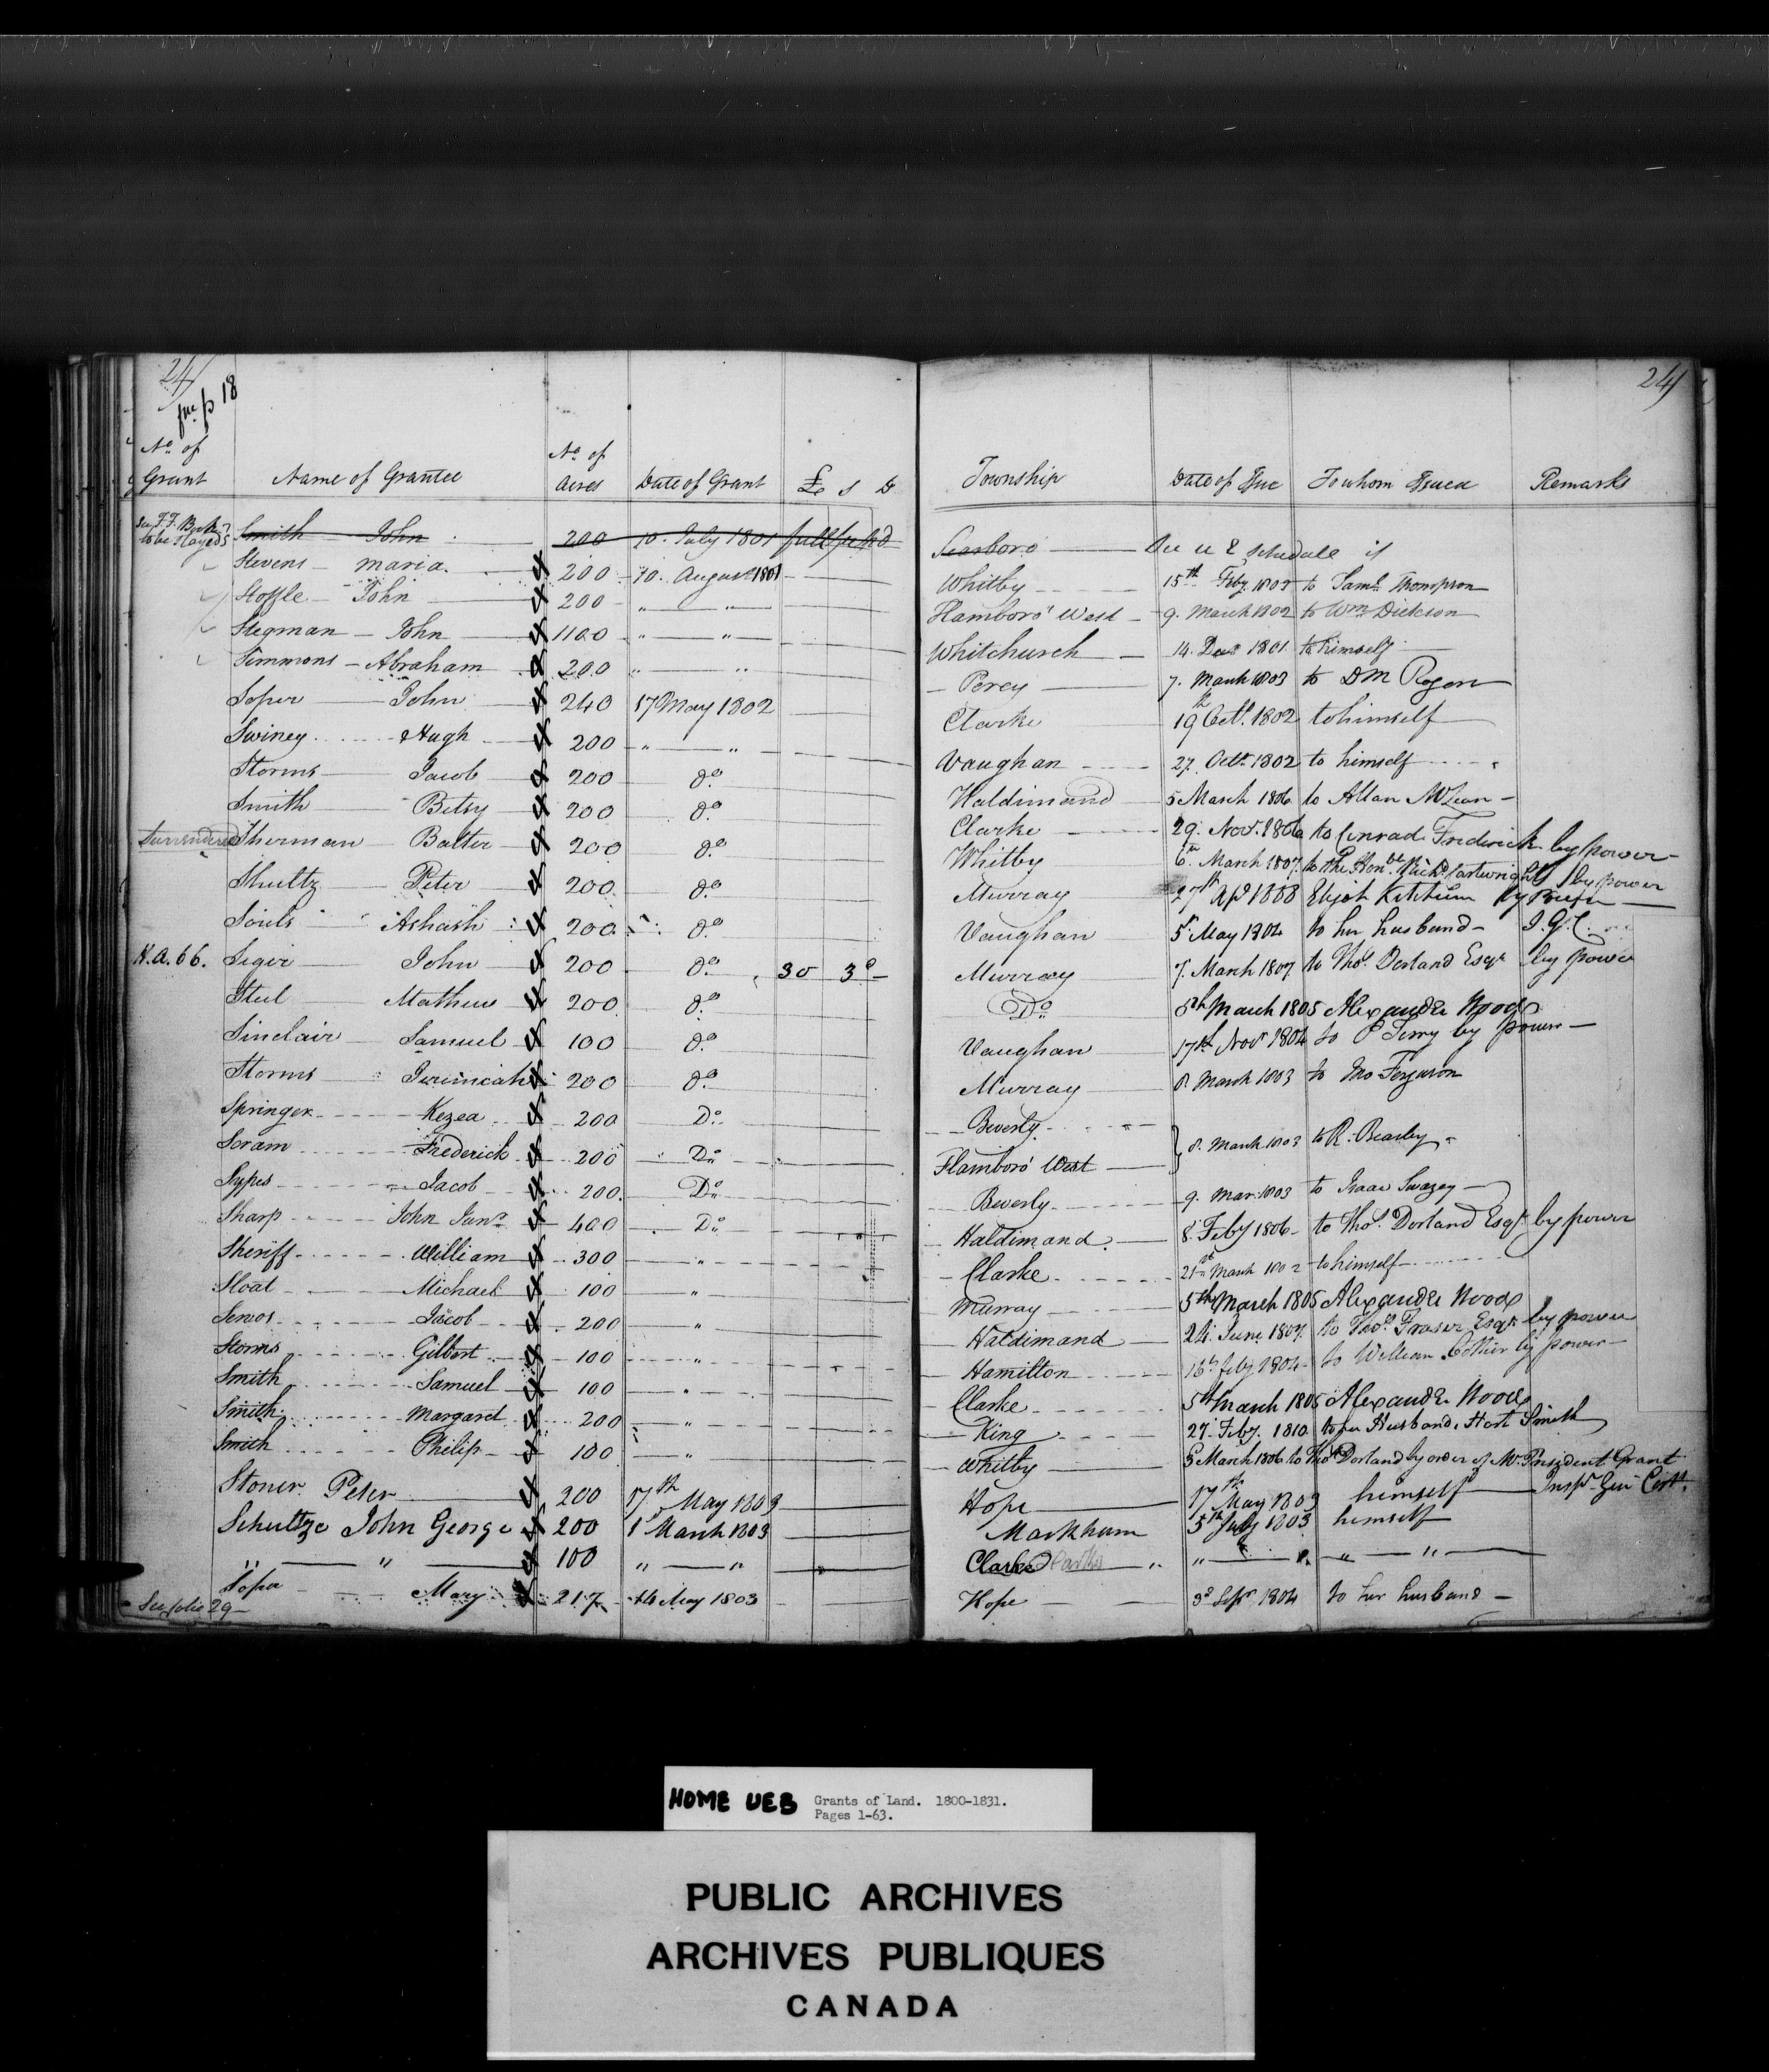 24
fm p 18
24
No of Grant Name of Grantee No of Acres Date of Grant £ s D Township Date of Issue To whom Issued Remarks
Smith John 200 10. July 1801 full fees pd Scarboro See U E Schedule
Stevens Maria 200 10. August 1801 Whitby 15th Feby. 1803 to Saml. Thompson
Stoffle John 200 " " Flamboro' West 9. March 1802 to Wm Dickson
Stegman John 1100 " " Whitchurch 14. Decr 1801 to himself
Simmons Abraham 200 " " Percy 7. March 1803 to D M Rogers
Soper John 240 17 May 1802 Clarke 19th Octr. 1802 to himself
Swiney Hugh 200 " " Vaughan 27. Octr 1802 to himself
Storms Jacob 200 do. Haldimand 5 March 1806 to Allan McLean
Smith Betsy 200 do. Clarke 29. Novr. 1806 to Conrad Frederick by power
Surrendered Sherman Balter 200 do. Whitby 6th March 1807 to the Honble Richd. Cartwright by power
Shultz Peter 200 do. Murray 27th Apl 1808 Elijah Ketchum by Power
Souls 200 do. Vaughan 5 May 1804 to her husband I.G.C.
H.a. 66. Seger John 200 do. 30 3 Murray 7. March 1807 to Thos. Dorland Esqr by power
Steel Mathew 200 do. Do. 5th March 1805 Alexander Wood
Sinclair Samuel 100 do. Vaughan 17th Novr 1804 to P Terry by power
Storms Jeremiah 200 do. Murray 8. March 1803 to Jno Ferguson
Springer Kezea 200 Do. Beverly } 8. March 1803 to R. Beasley
Scram Frederick 200 Do. Flamboro' West
Sypes Jacob 200 Do. Beverly 9. Mar: 1803 to Isaac Swazey
Sharp John Junr. 400 Do. Haldimand 8. Feby 1806 to Thos. Dorland Esqr by power
Sheriff William 300 " Clarke 21st March 1802 to himself
Sloat Michael 100 " Murray 5th March 1805 Alexander Wood
Semos Jacob 200 " Haldimand 24. June 1807. to Thos. Fraser Esqr by power
Storms Gilbert 100 " Hamilton 16th Feby 1804 to William by power
Smith Samuel 100 " Clarke 5th March 1805 Alexander Wood
Smith Margaret 200 " King 27. Feby. 1810 to her Husband Hart Smith
Smith Philip 100 " Whitby 5 March 1806 to Thos Dorland by order of Mr. President Grant
Stoner Peter 200 17th May 1803 Hope 17th May 1803 himself Inspr Gen Cert.
Schultze John George 200 1 March 1803 Markham 5th July 1803 himself
" " 100 " " Clarke " " " "
Soper Mary 217 14 May 1803 Hope 3d Sepr 1804 to her husband
See folio 29
HOME UEB Grants of Land. 1800-1831.
Pages 1-63.
PUBLIC ARCHIVES
ARCHIVES PUBLIQUES
CANADA